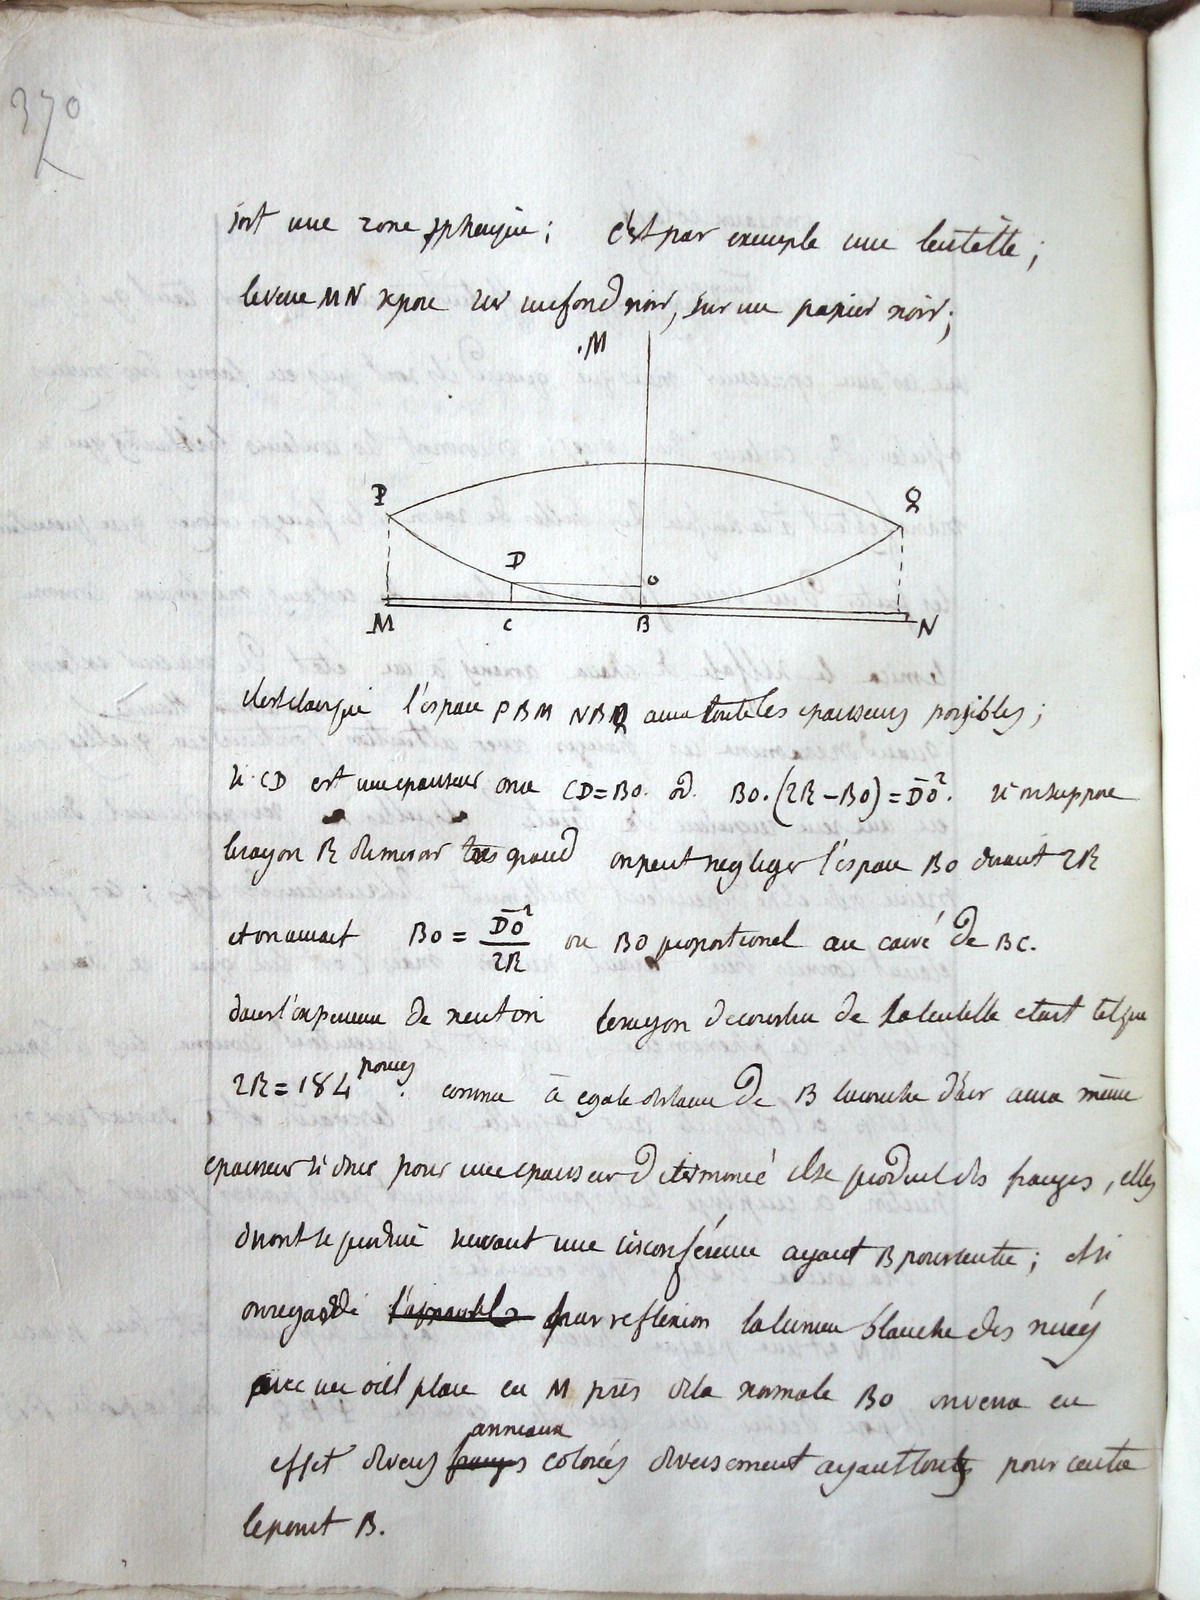 370
soit une zone spherique; c'est par exemple une lentille;
le verre MN repose sur un fond noir, sur un papier noir;
.M
P
Q
D
O
M
C
B
N
il est clair que l'espace PBM NBQ aura toutes les epaisseurs possibles;
si CD est une epaisseur on a CD=BO. or BO.(2R-BO)=DO². si on suppose
le rayon R du miroir très grand on peut negliger l'espace BO devant 2R
et on aurait BO = DO²/2R ou BO proportionel au carré de BC.
dans l'experience de neuton le rayon de courbure de la lentille etait tel que
2R=184 pouces. comme à egale distance de B la couche d'air aura même
epaisseur si donc pour une epaisseur determinée il se produit des franges, elles
devront se produire suivant une circonférence ayant B pour centre; et si
on regarde par reflexion la lumiere blanche des nuées
avec un oeil placé en M près de la normale BO on verra en
anneaux
effet divers franges colorés diversement ayant tous pour centre
le point B.